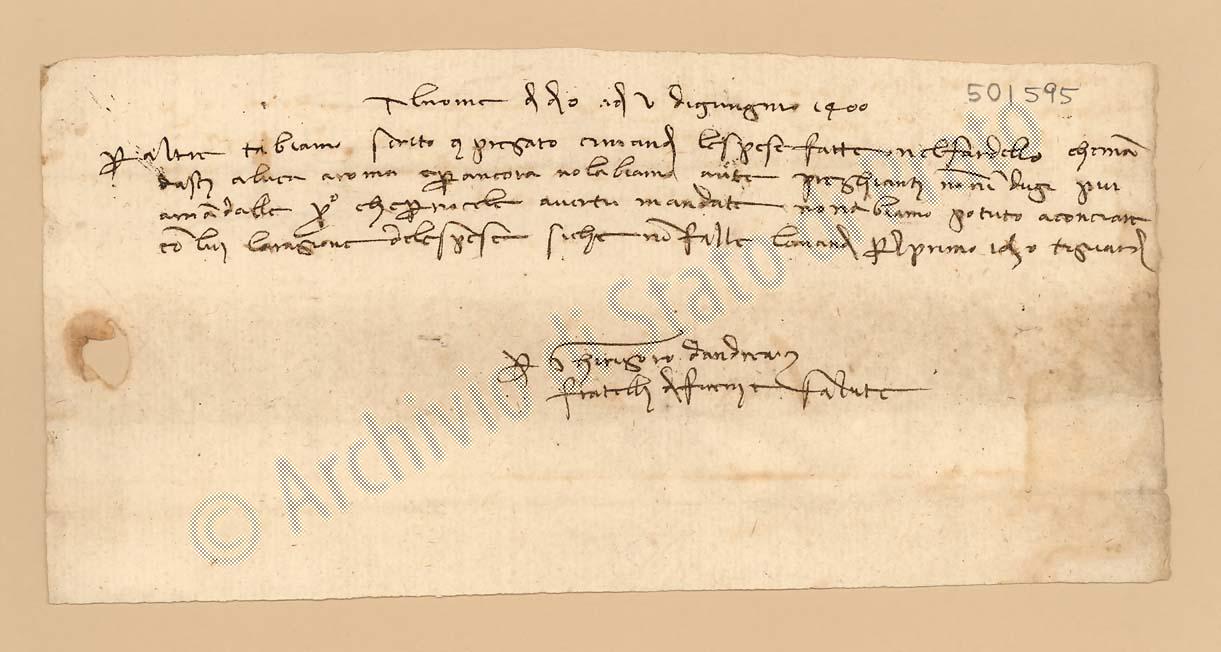 501595
Al nome d d o ad v di gungno 1400
Per altre tabiamo scrito e pregato ci mandi le spese fatte nel fardello che man
dasti a luca a roma e per ancora no labiamo aute preghianti non indugi pui
a mandalle però che per no cele avere tu mandate non abiamo potuto aconciare
con lui la ragione dele spese siche non falle le mandi per lo primo idio ti guardi
per Ghirigoro dandrea e
fratelli di firenze salute
© Archivio di Stato di Prato